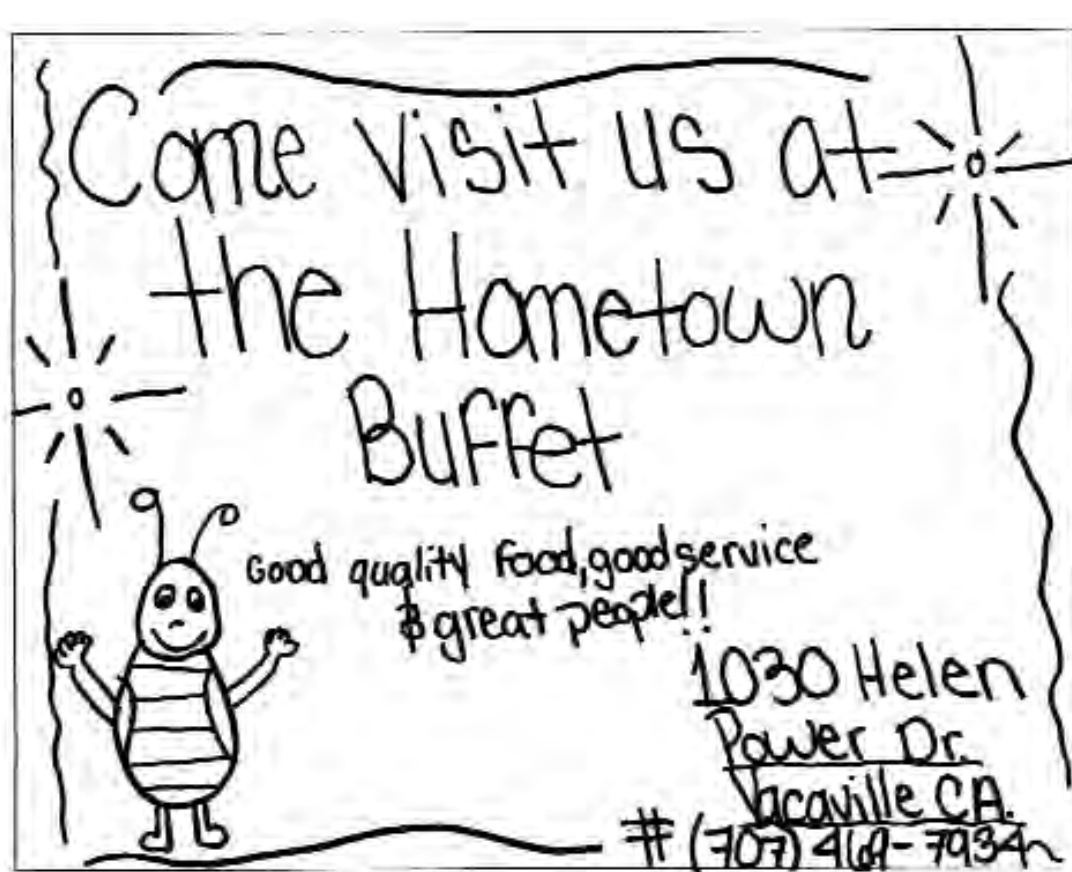 Come visit us at
the Hometown
Buffet
Good quality food, good service
& great people!!
1030 Helen
Power Dr.
Vacaville CA.
# (707) 469-7934